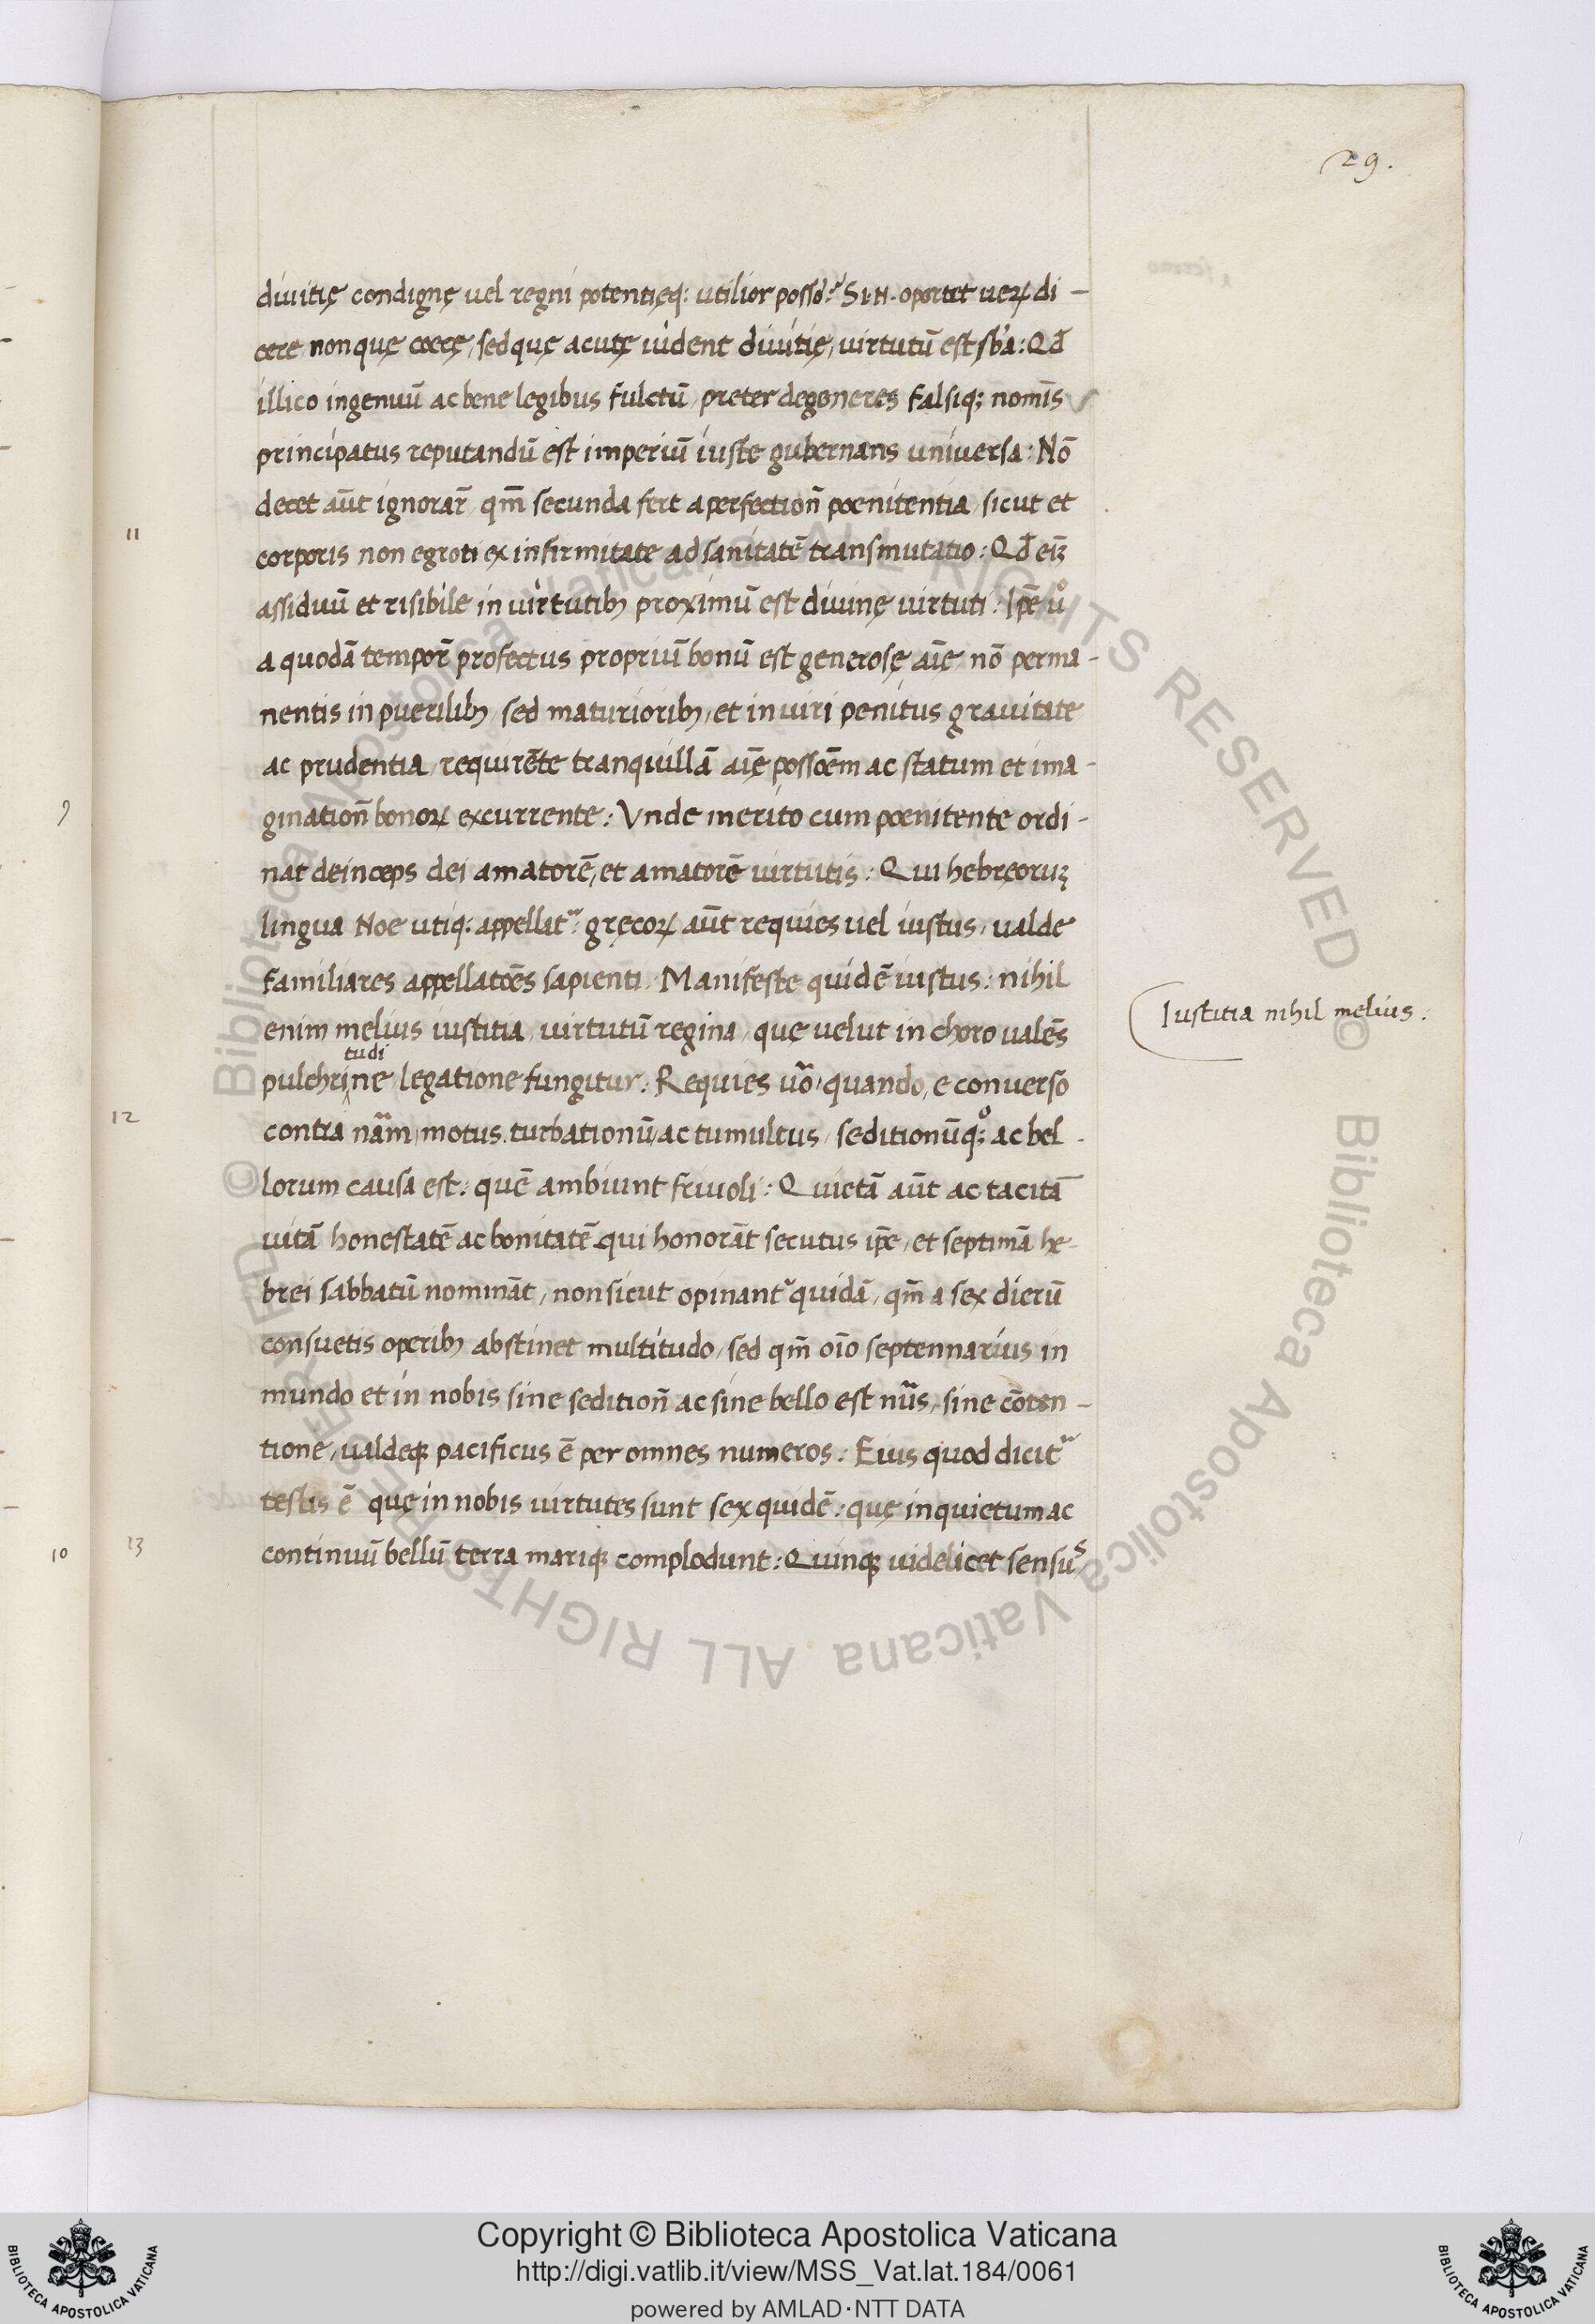 29.
diuitię condignę uel regni potentięq: utilior possō? SIN. oportet ueꝝ di-
cere non quę coecę, sed quę acute uident diuitię, virtutū est sb'a: Qđ
illico ingenuū ac bene legibus fulctū preter degeneres falsiq; nomīs
principatus reputandū est imperiū iuste gubernans uniuersa: Nō
decet aūt ignorar̄ qm̄ secunda fert a perfection̄ poenitentia, sicut et
11
corporis non egroti ex infirmitate ad sanitatē transmutatio: Qđ eīz
assiduū et risibile in virtutibꝫ proximū est diuinę uirtuti: Ipē u°
a quodā tempor̄ profectus propriū bonū est generosę aīę nō perma-
nentis in puerilibꝫ, sed maturioribꝫ, et in uiri penitus grauitate
ac prudentia, requirēte tranquillā aīę possoēm ac statum et ima-
gination̄ bonoꝝ excurrente: Vnde merito cum poenitente ordi-
nat deinceps dei amatorē, et amatorē uirtutis: Qui hebręoruꝫ
lingua Noe utiq: appellat᷑: gręcoꝝ aūt requies uel iustus, ualde
familiares appellatōēs sapienti. Manifeste quidē iustus: nihil
enim melius iustitia, virtutū regina, quę uelut in choro ualēs
Iustitia nihil melius:
tudi
pulchrine legatione fungitur: Requies uō, quando, e conuerso
12
contra nām, motus, turbationū, ac tumultus, seditionūq; ac bel-
lorum causa est: quē ambiunt friuoli: Quietā aūt ac tacitā
uitā honestatē ac bonitatē qui honorāt secutus ipē, et septimā he-
brei sabbatū nomināt, non sicut opinant᷑ quidā, qm̄ a sex dierū
consuetis operibꝫ abstinet multitudo, sed qm̄ oīo septennarius in
mundo et in nobis sine sedition̄ ac sine bello est nūs, sine cōten-
tione, ualdeqꝫ pacificus ē per omnes numeros: Eius quod dicit᷑
testis ē quę in nobis uirtutes sunt sex quidē: quę inquietum ac
13
continuū bellū terra mariqꝫ complodunt: Quinqꝫ uidelicet sensus
9
10
Copyright © Biblioteca Apostolica Vaticana
http://digi.vatlib.it/view/MSS_Vat.lat.184/0061
powered by AMLAD·NTT DATA
BIBLIOTECA APOSTOLICA VATICANA
BIBLIOTECA APOSTOLICA VATICANA
© Biblioteca Apostolica Vaticana ALL RIGHTS RESERVED © Biblioteca Apostolica Vaticana ALL RIGHTS RESERVED